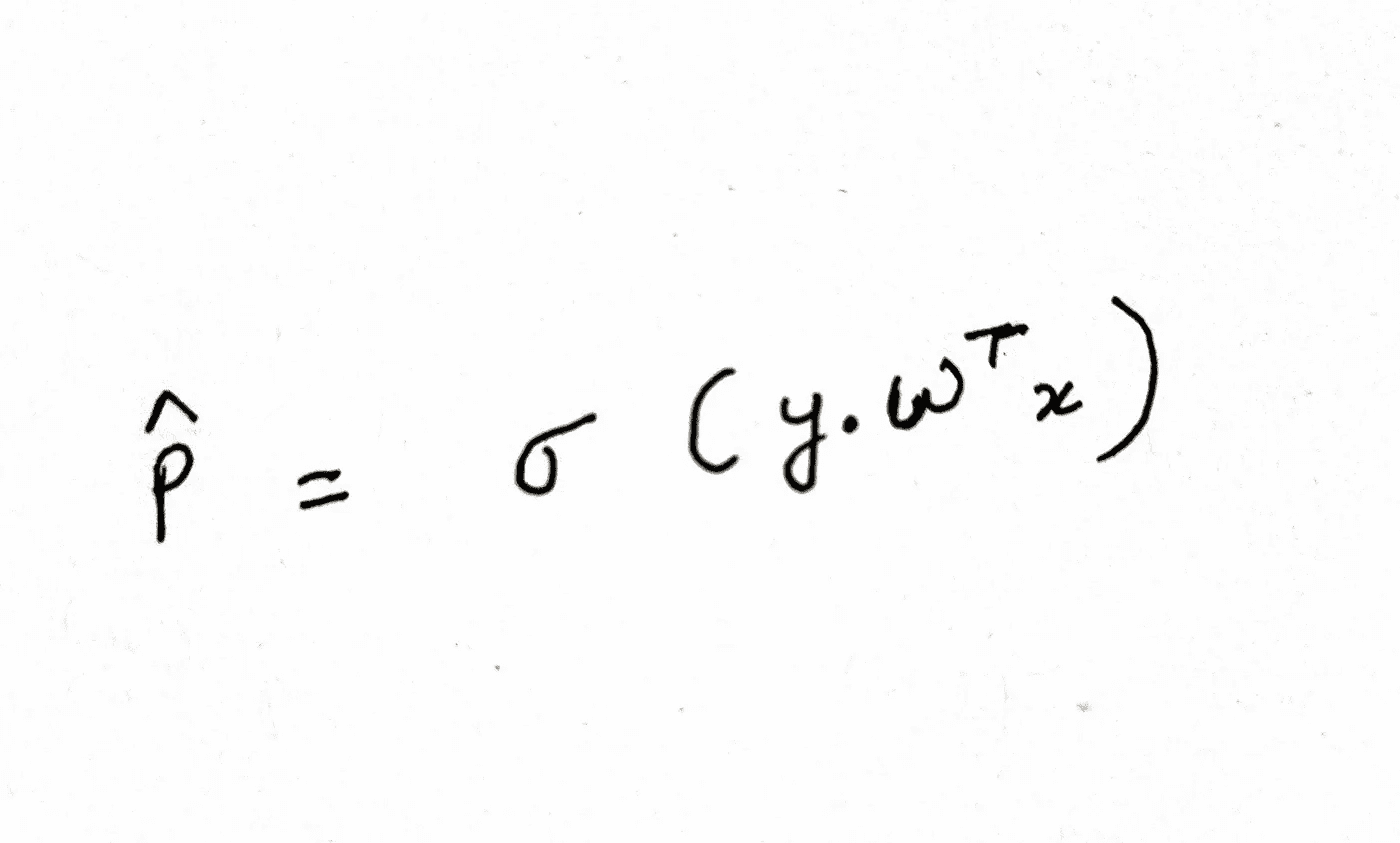 p̂ = σ (y. ω^T x)